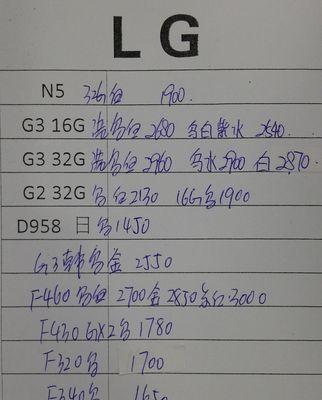 LG
N5 32G白 1900.
G3 16G 港乌白2680 乌白紫水 2540.
G3 32G 港乌白2960 乌水2900 白2870.
G2 32G 乌白2130 16G乌1900
D958 日 乌1450
G3韩乌金 2550
F460乌白 2700金2850 3000
F430 GX2乌 1780
F320乌 1700
F340乌 1650